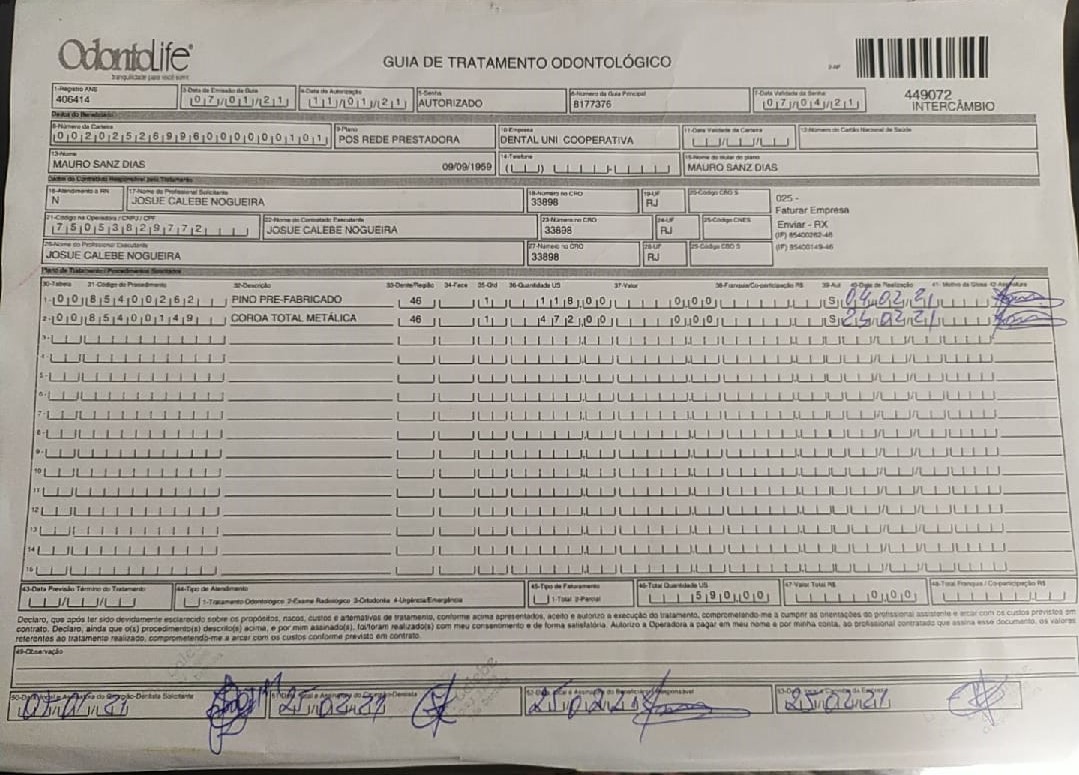 OdontoLife
tranquilidade para você sorrir
GUIA DE TRATAMENTO ODONTOLÓGICO
2-Nº
449072
INTERCÂMBIO
1-Registro ANS
406414
3-Data de Emissão da Guia
07/01/21
4-Data de Autorização
11/01/21
5-Senha
AUTORIZADO
6-Número da Guia Principal
8177376
7-Data Validade da Senha
07/04/21
Dados do Beneficiário
8-Número da Carteira
00202526996000000101
9-Plano
POS REDE PRESTADORA
10-Empresa
DENTAL UNI COOPERATIVA
11-Data Validade da Carteira
12-Número do Cartão Nacional de Saúde
13-Nome
MAURO SANZ DIAS
09/09/1959
14-Telefone
15-Nome do titular do plano
MAURO SANZ DIAS
Dados do Contratado Responsável pelo Tratamento
16-Atendimento a RN
N
17-Nome do Profissional Solicitante
JOSUE CALEBE NOGUEIRA
18-Número no CRO
33898
19-UF
RJ
20-Código CBO S
025 -
Faturar Empresa
Enviar - RX
(IP) 85400262-46
(IP) 85400149-46
21-Código na Operadora / CNPJ / CPF
75053829772
22-Nome do Contratado Executante
JOSUE CALEBE NOGUEIRA
23-Número no CRO
33898
24-UF
RJ
25-Código CNES
26-Nome do Profissional Executante
JOSUE CALEBE NOGUEIRA
27-Número no CRO
33898
28-UF
RJ
29-Código CBO S
Plano de Tratamento / Procedimentos Solicitados
30-Tabela 31-Código do Procedimento 32-Descrição 33-Dente/Região 34-Face 35-Qtd 36-Quantidade US 37-Valor 38-Franquia/Co-participação R$ 39-Aut 40-Data de Realização 41- Motivo da Glosa 42-Assinatura
1- 00 85400262 PINO PRE-FABRICADO 46 1 118,00 0,00 S 04/02/21
2- 00 85400149 COROA TOTAL METÁLICA 46 1 472,00 0,00 S 25/02/21
3-
4-
5-
6-
7-
8-
9-
10-
11-
12-
13-
14-
15-
43-Data Previsão Término do Tratamento
44-Tipo de Atendimento
1-Tratamento Odontológico 2-Exame Radiológico 3-Ortodontia 4-Urgência/Emergência
45-Tipo de Faturamento
1-Total 2-Parcial
46-Total Quantidade US
590,00
47-Valor Total R$
0,00
48-Total Franquia / Co-participação R$
Declaro, que após ter sido devidamente esclarecido sobre os propósitos, riscos, custos e alternativas de tratamento, conforme acima apresentados, aceito e autorizo a execução do tratamento, comprometendo-me a cumprir as orientações do profissional assistente e arcar com os custos previstos em
contrato. Declaro, ainda que o(s) procedimento(s) descrito(s) acima, e por mim assinado(s), foi/foram realizado(s) com meu consentimento e de forma satisfatória. Autorizo a Operadora a pagar em meu nome e por minha conta, ao profissional contratado que assina esse documento, os valores
referentes ao tratamento realizado, comprometendo-me a arcar com os custos conforme previsto em contrato.
49-Observação
25/02/21
25/02/21
25/02/21